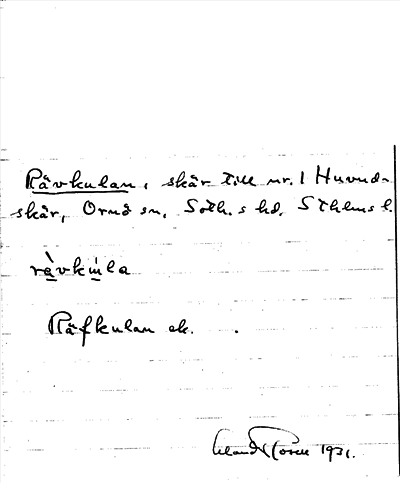 Rävkulan, skär till nr. 1 Huvud-
skär, Ornö sn, Soth.s hd, Sthlms l.
rävkula
Räfkulan ek.
1931.